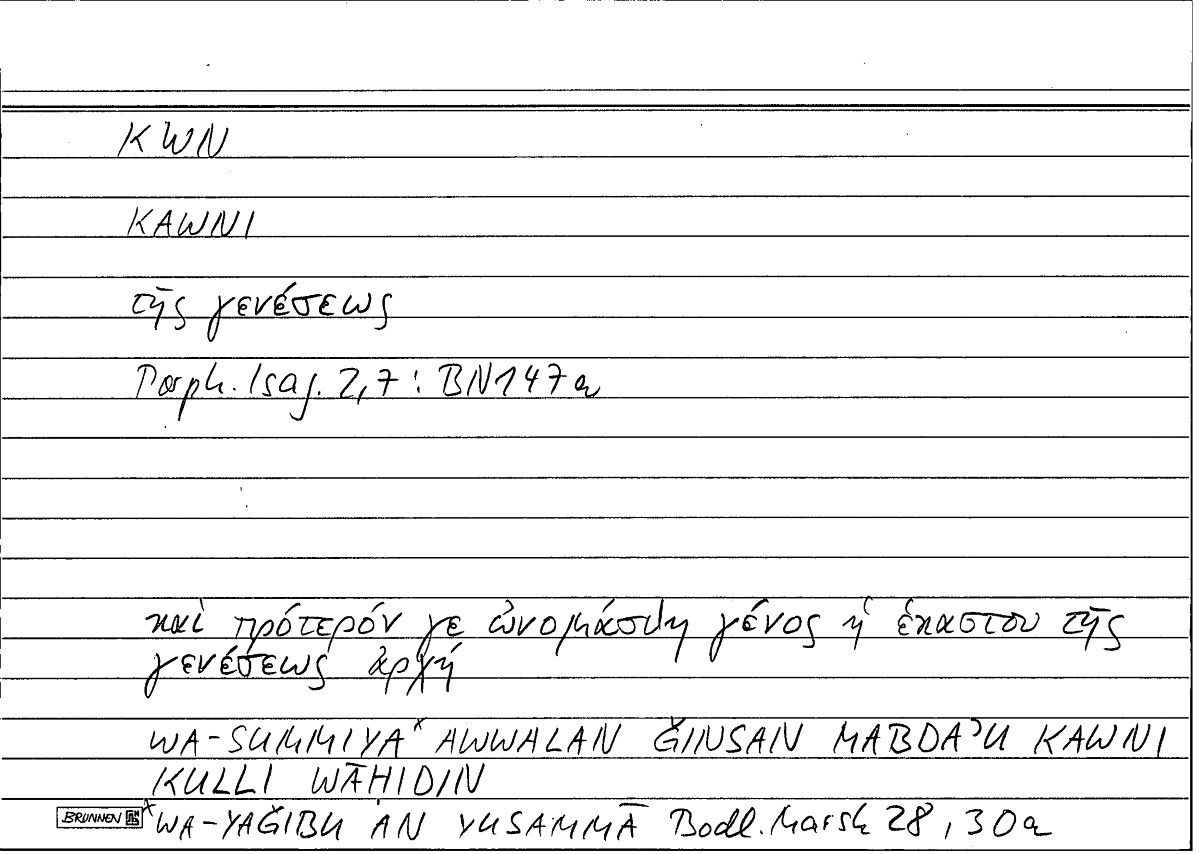 KWN
KAWNI
τῆς γενέσεως
Porph. Isag. 2,7 : BN 147a
καὶ πρότερόν γε ὠνομάσθη γένος ἡ ἑκάστου τῆς
γενέσεως ἀρχή
WA-SUMMIYAˣ AWWALAN ĞINSAN MABDAʾU KAWNI
KULLI WĀHIDIN
BRUNNEN ˣWA-YAĞIBU AN YUSAMMĀ Bodl. Marsh 28, 30a